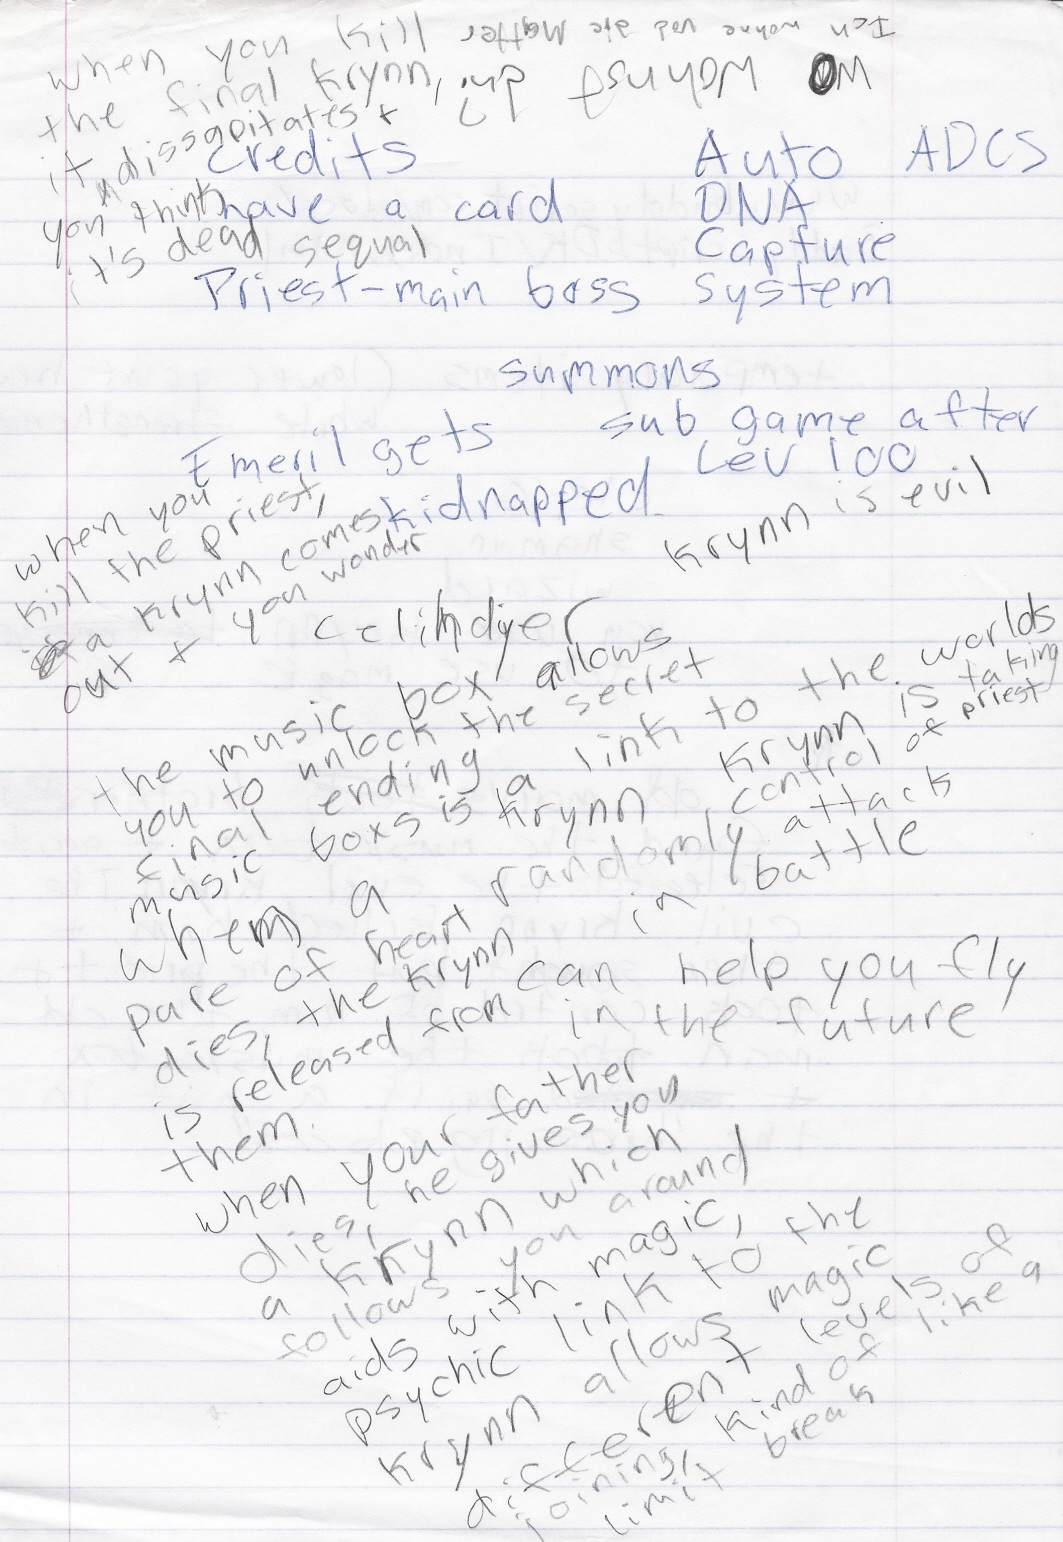 Ich wohne
Wo wohnst du?
when you kill
the final Krynn,
it dissapitates +
you think
it's dead sequal
Credits
have a card
Priest-main boss
Auto ADCS
DNA
Capture
System
summons
sub game after
Lev 100
Emeril gets
kidnapped
Krynn is evil
when you
kill the priest,
a Krynn comes
out + you wonder
the music box allows
you to unlock the secret
final ending
music boxs is a link to the worlds
Krynn
Krynn is taking
control of priest
when a
pure of heart
dies, the Krynn
is released from
them.
randomly attack
in battle
can help you fly
in the future
when your father
dies, he gives you
a Krynn which
follows you around
aids with magic,
psychic link to the
Krynn allows magic
different levels of
joining, kind of like a
limit break